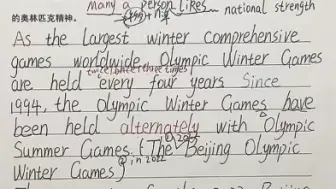 many a person likes national strength
的奥林匹克精神。
As the largest winter comprehensive
games worldwide, Olympic Winter Games
twice three times
are held every four years Since
1994, the Olympic Winter Games have
been held alternately with Olympic
Summer Games. (The Beijing Olympic
in 2022
Winter Games)